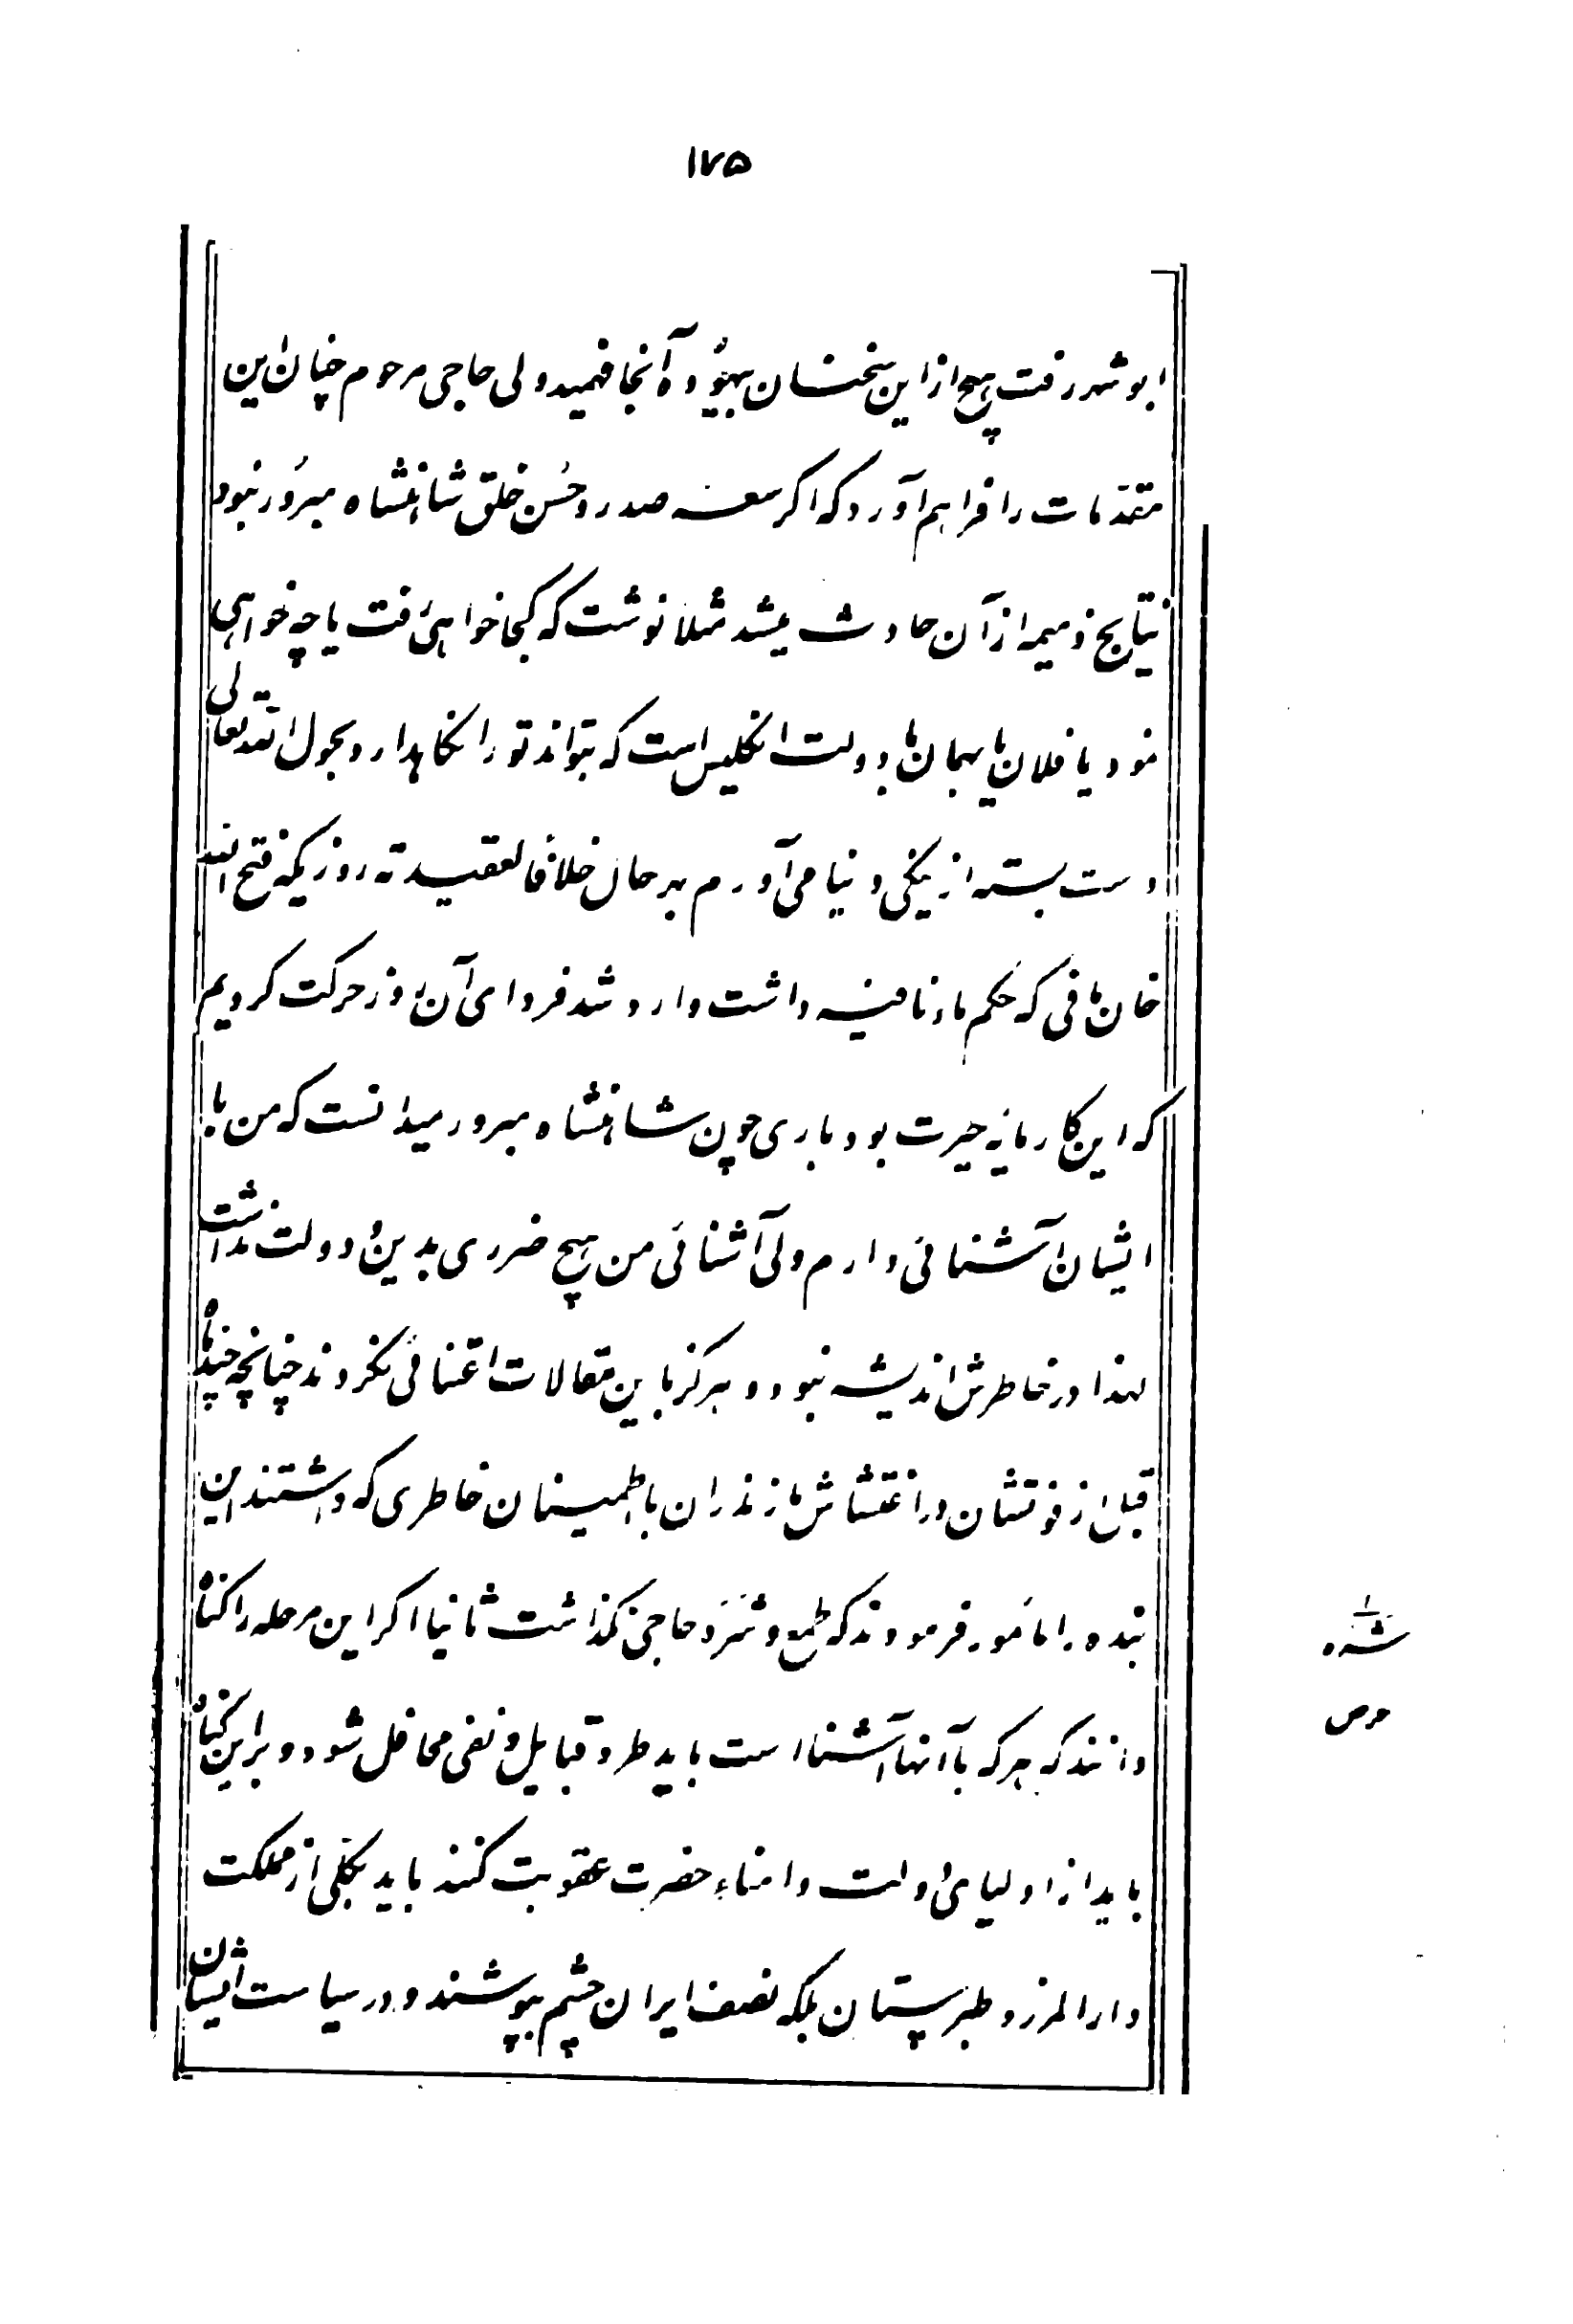 ۱۷۵
ابوشهر رفت هیچ از این سخنان بیهوده آنجا فهمید ولی حاجی مرحوم چنان این
مقدمات را فراهم آورد که اگر سعه صدر و حسن خلق شاهنشاه مبرور نبود
نتایج ذمیمه از آن حادث میشد مثلا نوشت که کجا خواهی رفت یا چه خواهی
نمود یا فلان یا بهمان یا دولت انگلیس است که بتواند تو را نگاهدارد بحول الله تعالی
دست بسته از ینگی دنیا می‌آورم بهر حال خلافا لعقیدته روزیکه فتح الله
خان مافی که حکم ما را داشت وارد شد فردای آن روز حرکت کردیم
که این کار مایه حیرت بود باری چون شاهنشاه مبرور میدانست که من با
ایشان آشنائی دارم ولی آشنائی من هیچ ضرری بدین و دولت نداشت
لهذا در خاطرش اندیشه نبود و هرگز باین مقالات اعتنائی نکردند چنانچه چند ماه
قبل از فوتشان در اغتشاش مازندران با اطمینان خاطری که داشتند این
بنده را مأمور فرمودند که طمع و شره حاجی نگذاشت ثانیا اگر این مرحله را گناه
دانند که هر که با آنها آشنا است باید طرد قبایل و نفی محافل شود و بر این گناه
باید از اولیای دولت و امناء حضرت عقوبت کنند باید بکلی از مملکت
دارالمرز و طبرستان بلکه نصف ایران چشم بپوشند و در سیاست ایشان
شره
حرص